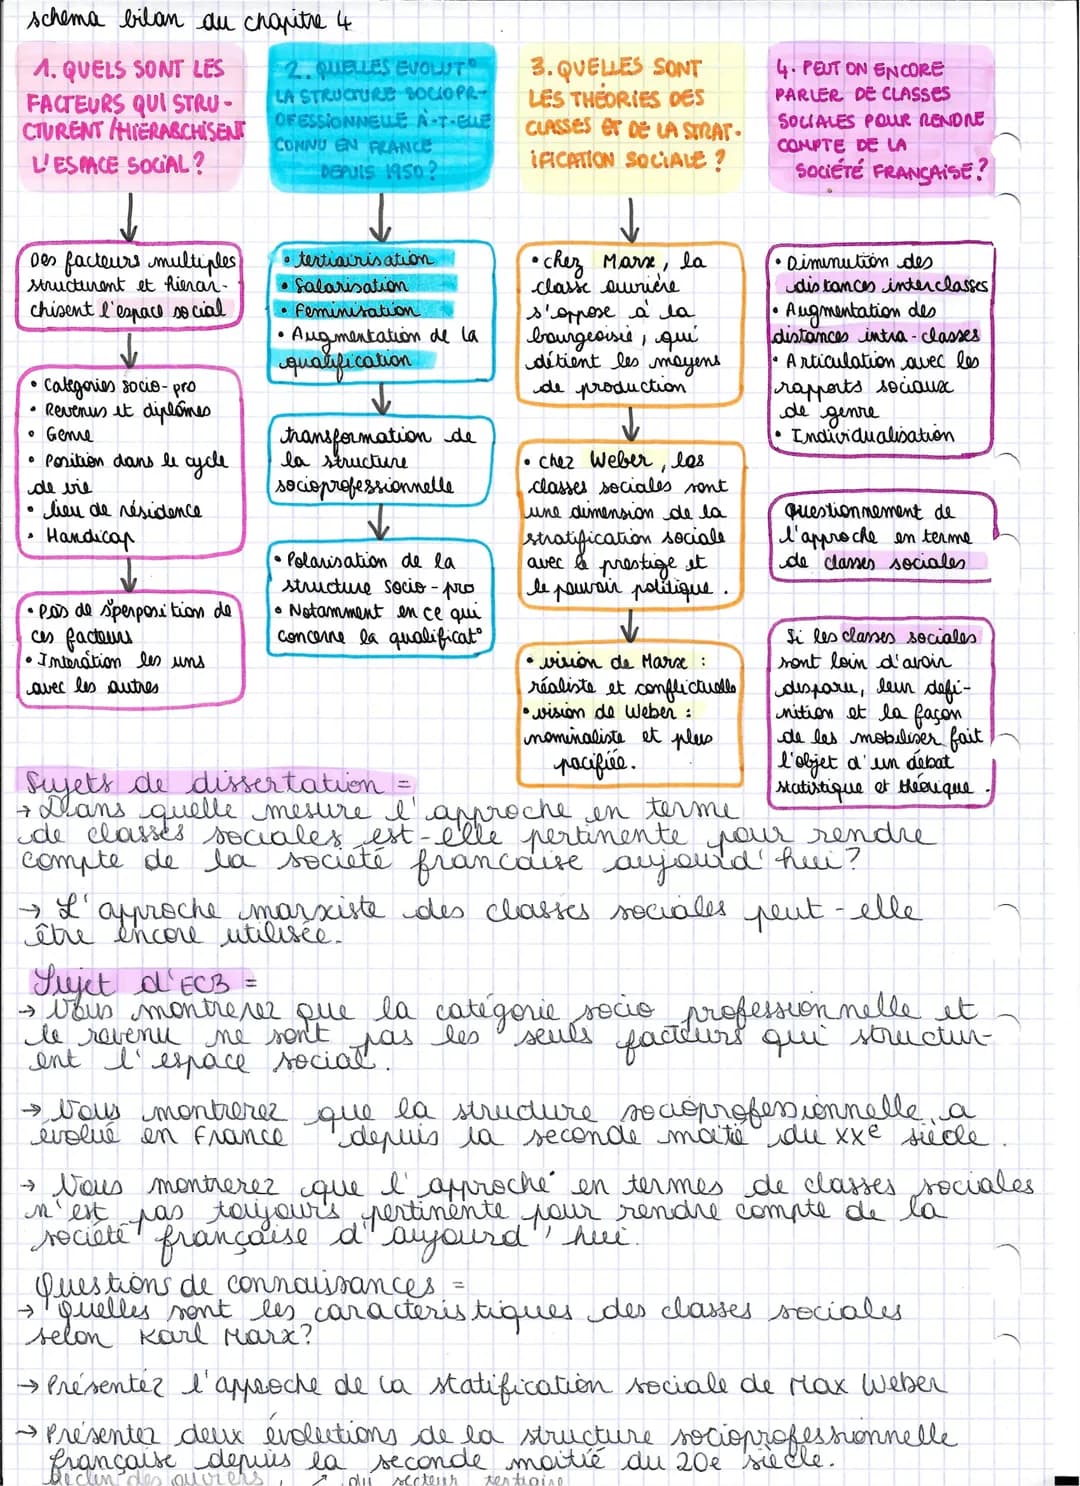 schema bilan du chapitre 4
1. QUELS SONT LES
FACTEURS QUI STRU-
CTURENT/HIÉRARCHISENT
L'ESPACE SOCIAL?
2. QUELLES EVOLUT°
LA STRUCTURE SOCIOPR-
OFESSIONNELLE A-T-ELLE
CONNU EN FRANCE
DEPUIS 1950?
3. QUELLES SONT
LES THÉORIES DES
CLASSES ET DE LA STRAT-
IFICATION SOCIALE ?
4. PEUT ON ENCORE
PARLER DE CLASSES
SOCIALES POUR RENDRE
COMPTE DE LA
SOCIÉTÉ FRANÇAISE?
Des facteurs multiples
structurent et hiérar-
chisent l'espace social
• Catégories socio-pro
• Revenus et diplômes
• Genre
• Position dans le cycle
de vie
• lieu de résidence
• Handicap
• pas de sperposition de
ces facteurs
• Interation les uns
avec les autres
• tertiairisation
• Salarisation
• Feminisation
• Augmentation de la
qualification
transformation de
la structure
socioprofessionnelle
• Polarisation de la
structure socio-pro
• Notamment en ce qui
concerne la qualificat°
• chez Marx, la
classe ouvrière
s'oppose à la
bourgeoisie, qui
détient les moyens
de production
• chez Weber, les
classes sociales sont
une dimension de la
stratification sociale
avec le prestige et
le pouvoir politique.
• vision de Marx :
réaliste et conflictuelle
• vision de Weber :
nominaliste et plus
pacifiée.
• Diminution des
distances interclasses
• Augmentation des
distances intra-classes
• Articulation avec les
rapports sociaux
de genre
• Individualisation
Questionnement de
l'approche en terme
de classes sociales
Si les classes sociales
sont loin d'avoir
disparu, leur défi-
nition et la façon
de les mobiliser fait
l'objet d'un débat
statistique et théorique.
Sujets de dissertation =
→ Dans quelle mesure l'approche en terme
de classes sociales est-elle pertinente pour rendre
compte de la société francaise aujourd'hui?
→ L'approche marxiste des classes sociales peut-elle
être encore utilisée.
Sujet d'EC3 =
→ Vous montrerez que la catégorie socio professionnelle et
le revenu ne sont pas les seuls facteurs qui structur-
ent l'espace social.
→ Vous montrerez que la structure socioprofessionnelle a
évolué en France depuis la seconde moitié du XXe siècle.
→ Vous montrerez que l'approche en termes de classes sociales
n'est pas toujours pertinente pour rendre compte de la
société française d'aujourd'hui.
Questions de connaissances =
→ quelles sont les caractéristiques des classes sociales
selon Karl Marx?
→ Présentez l'approche de la statification sociale de Max Weber
→ Présentez deux évolutions de la structure socioprofessionnelle
française depuis la seconde moitié du 20e siècle.
déclin des ouvriers, ↗ du secteur tertiaire